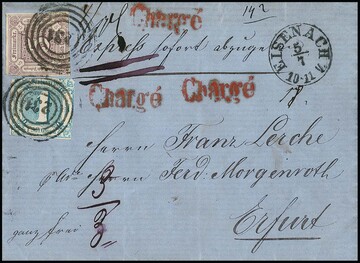 Chargé
Express sofort abzugeben
EISENACH
5/7
10-11
Chargé Chargé
Herrn Franz Lerche
Herrn Ferd: Morgenroth
Erfurt
ganz frei
3
3